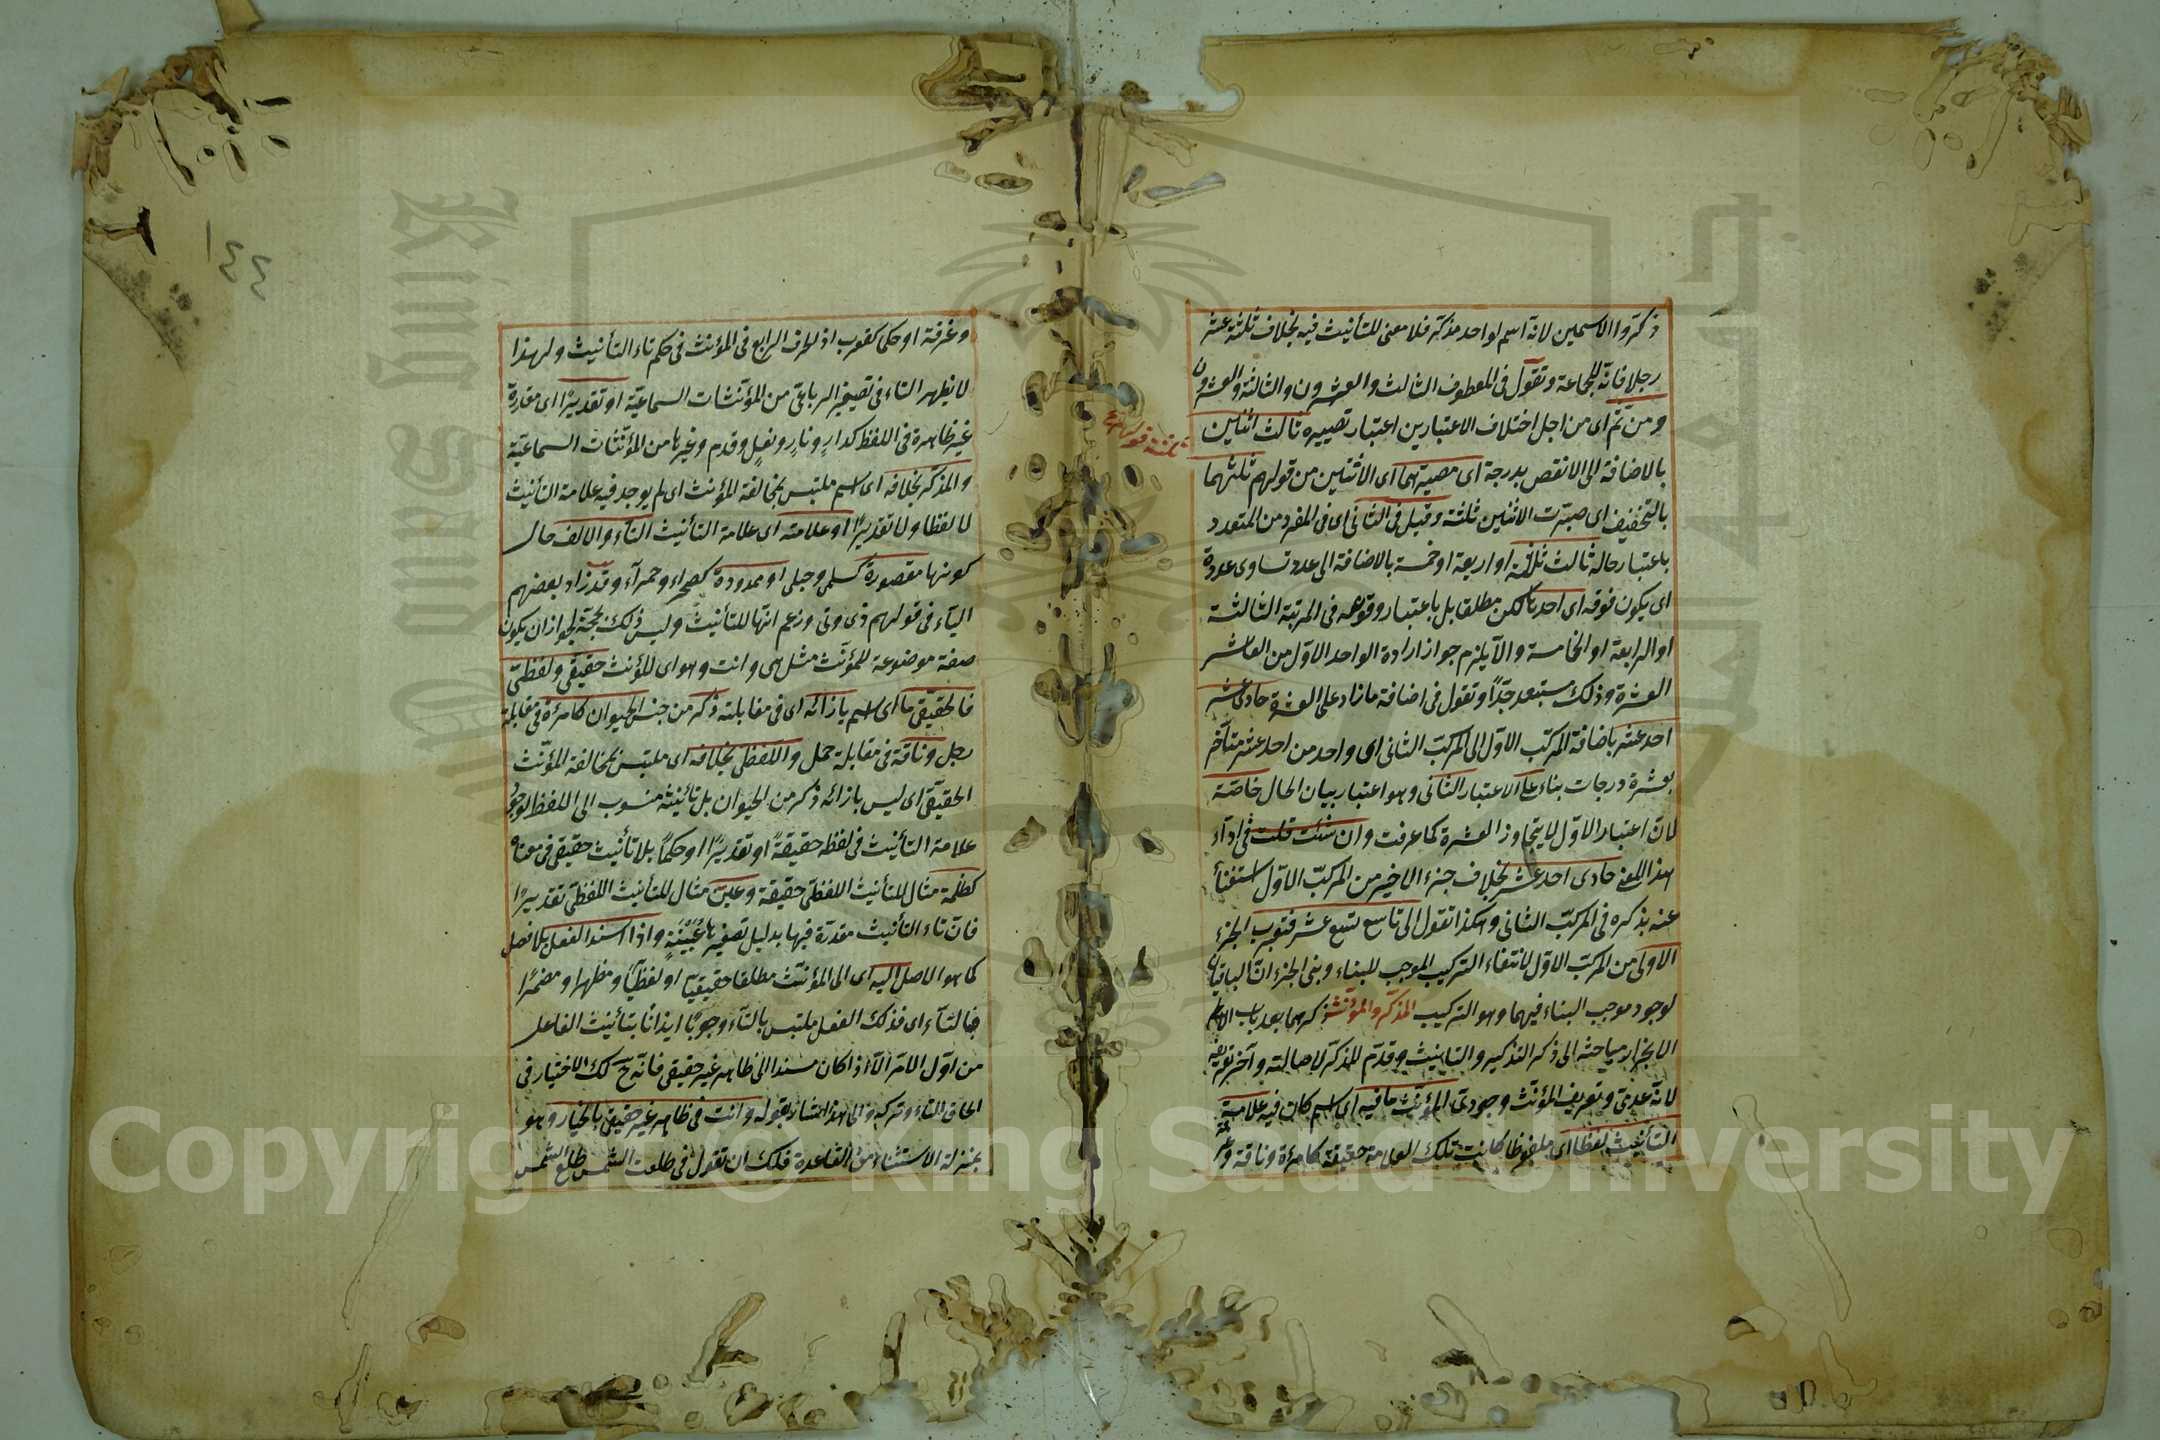 ذكّروا الاسمين لانه اسم لواحد مذكر فلا معنى للتأنيث فيه بخلاف ثلثة عشر
رجلا فانّه للجماعة وتقول فى المعطوف الثالث والعشرون والثالثة والعشرون
ومن ثم اى من اجل اختلاف الاعتبارين اعتبار تصييره ثالث اثنين
بالاضافة الى الانقص بدرجة اى مصيرهما اى الاثنين من قولهم ثلثتهما
بالتخفيف اى صيّرت الاثنين ثلثة وقيل فى الثانى اى فى المفرد من المتعدد
باعتبار حاله ثالث ثلثة او اربعة او خمسة بالاضافة الى عدد تساوى عدده
اى يكون فوقه اى احدها لكن مطلقا بل باعتبار وقوعه فى المرتبة الثالثة
او الرابعة او الخامسة والا يلزم جواز ارادة الواحد الاوّل من العاشر
العشرة وذلك مستبعد جدّاً وتقول فى اضافة ما زاد على العشرة حادى عشر
احد عشر باضافة المركب الاوّل الى المركب الثانى اى واحد من احد عشر متأخر
بعشرة درجات بناء على الاعتبار الثانى وهو اعتبار بيان الحال خاصّة
لانّ اعتبار الاوّل لا يتجاوز العشرة كما عرفت وان شئت قلت فى اداء
هذا المعنى حادى احد عشر بخلاف جزء الاخير من المركب الاوّل استغناء
عنه بذكره فى المركب الثانى وهكذا تقول الى تاسع تسع عشر فتعرب الجزء
الاولى من المركب الاوّل لانتفاء التركيب الموجب للبناء وبنى الجزءان الباقيان
لوجود موجب البناء فيهما وهو التركيب المذكّر والمؤنّث ذكرهما بعد باب
الانجرار مباحثه الى ذكر التذكير والتانيث وقدّم المذكّر لاصالته وآخر تعريفه
لانّه عدمىّ وتعريف المؤنّث وجودىّ المؤنّث ما فيه اى اسم كان فيه علامة
التأنيث لفظا اى ملفوظا كانت تلك العلامة حقيقة كامرأة وناقة
ثلثة قولهم
١٤٤
وغرفة او حكما كعقرب اذ الحرف الرابع فى المؤنث فى حكم تاء التأنيث ولهذا
لا يظهر التاء فى تصغير الرباعىّ من المؤنّثات السماعيّة او تقديرًا اى مقدرة
غير ظاهرة فى اللفظ كدارٍ ونارٍ ونعلٍ وقدم وغيرها من المؤنّثات السماعيّة
والمذكّر بخلافه اى اسم ملتبس بمخالفة المؤنث اى لم يوجد فيه علامة التأنيث
لا لفظا ولا تقديرًا وعلامته اى علامة التأنيث التاء والالف حال
كونها مقصورة كسلمى وحبلى او ممدودة كصحراء وحمرآء وقد زاد بعضهم
الياء فى قولهم ذى وتى وزعم انّها للتأنيث وليس ذلك بحجّة لجواز ان يكون
صيغة موضوعة للمؤنّث مثل هى وانت وهو اى المؤنث حقيقى ولفظىّ
فالحقيقى ما اى اسم بازائه اى فى مقابلته ذكر من جنس الحيوان كامرأة فى مقابلة
رجل وناقة فى مقابلة جمل واللفظى بخلافه اى ملتبس بمخالفة المؤنّث
الحقيقىّ اى ليس بازائه ذكر من الحيوان بل تأنيثه منسوب الى اللفظ لوجود
علامة التأنيث فى لفظه حقيقةً او تقديرًا او حكماً بلا تأنيث حقيقى فى معناه
كظلمة مثال للتأنيث اللفظى حقيقة وعين مثال للتأنيث اللفظى تقديرًا
فان تاء التأنيث مقدرة فيها بدليل تصغيرها عُيَيْنَةٍ واذا اسند الفعل بلا فصل
كما هو الاصل اليه اى الى المؤنّث مطلقا حقيقيّا او لفظيّا ومظهرا ومضمرًا
فبالتاء اى فذلك الفعل ملتبس بالتاء وجوبًا ايذانا بتأنيث الفاعل
من اوّل الامر الّا اذا كان مسندا الى ظاهر غير حقيقى فانّه ح لك الاختيار فى
الحاق التاء وتركه والى هذا اشار بقوله وانت فى ظاهر غير حقيقى بالخيار وهو
بمنزلة الاستثناء من القاعدة فلك ان تقول فى طلعت الشمس طلع الشمس
Copyright © King Saud University